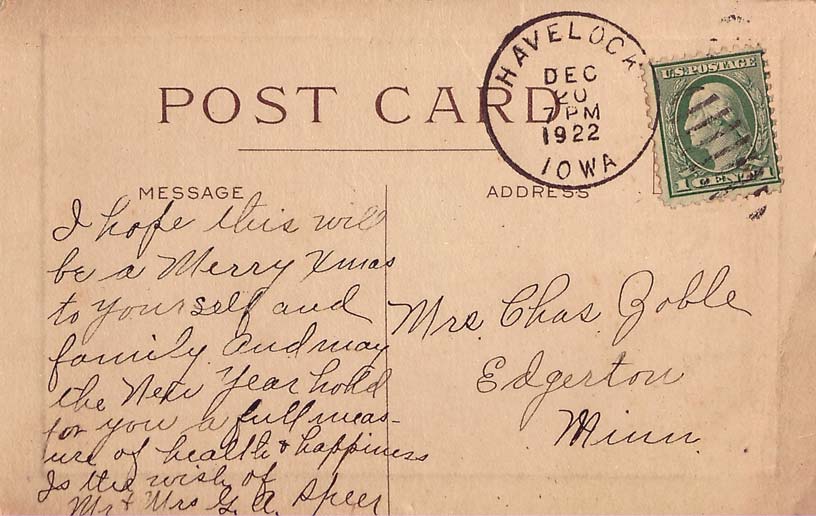 HAVELOCK
DEC
20
7 PM
1922
IOWA
U.S. POSTAGE
1 CENT 1
POST CARD
MESSAGE
I hope this will
be a Merry Xmas
to yourself and
family. And may
the New Year hold
for you a full meas-
ure of health & happiness
Is the wish of
Mr & Mrs G. A. Speer
ADDRESS
Mrs. Chas Zoble
Edgerton
Minn.